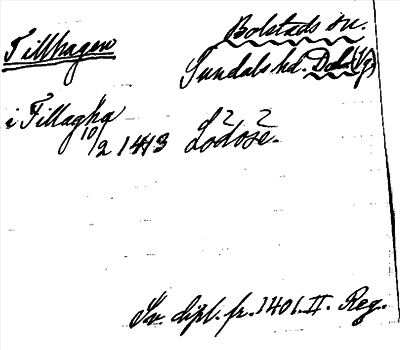 Tillhagen
Bolstads sn.
Sundals hd. Dals (Vg)
i Tillaghæ
10/2 1413 Lodose.
Sv. dipl. fr. 1401. II. Reg.